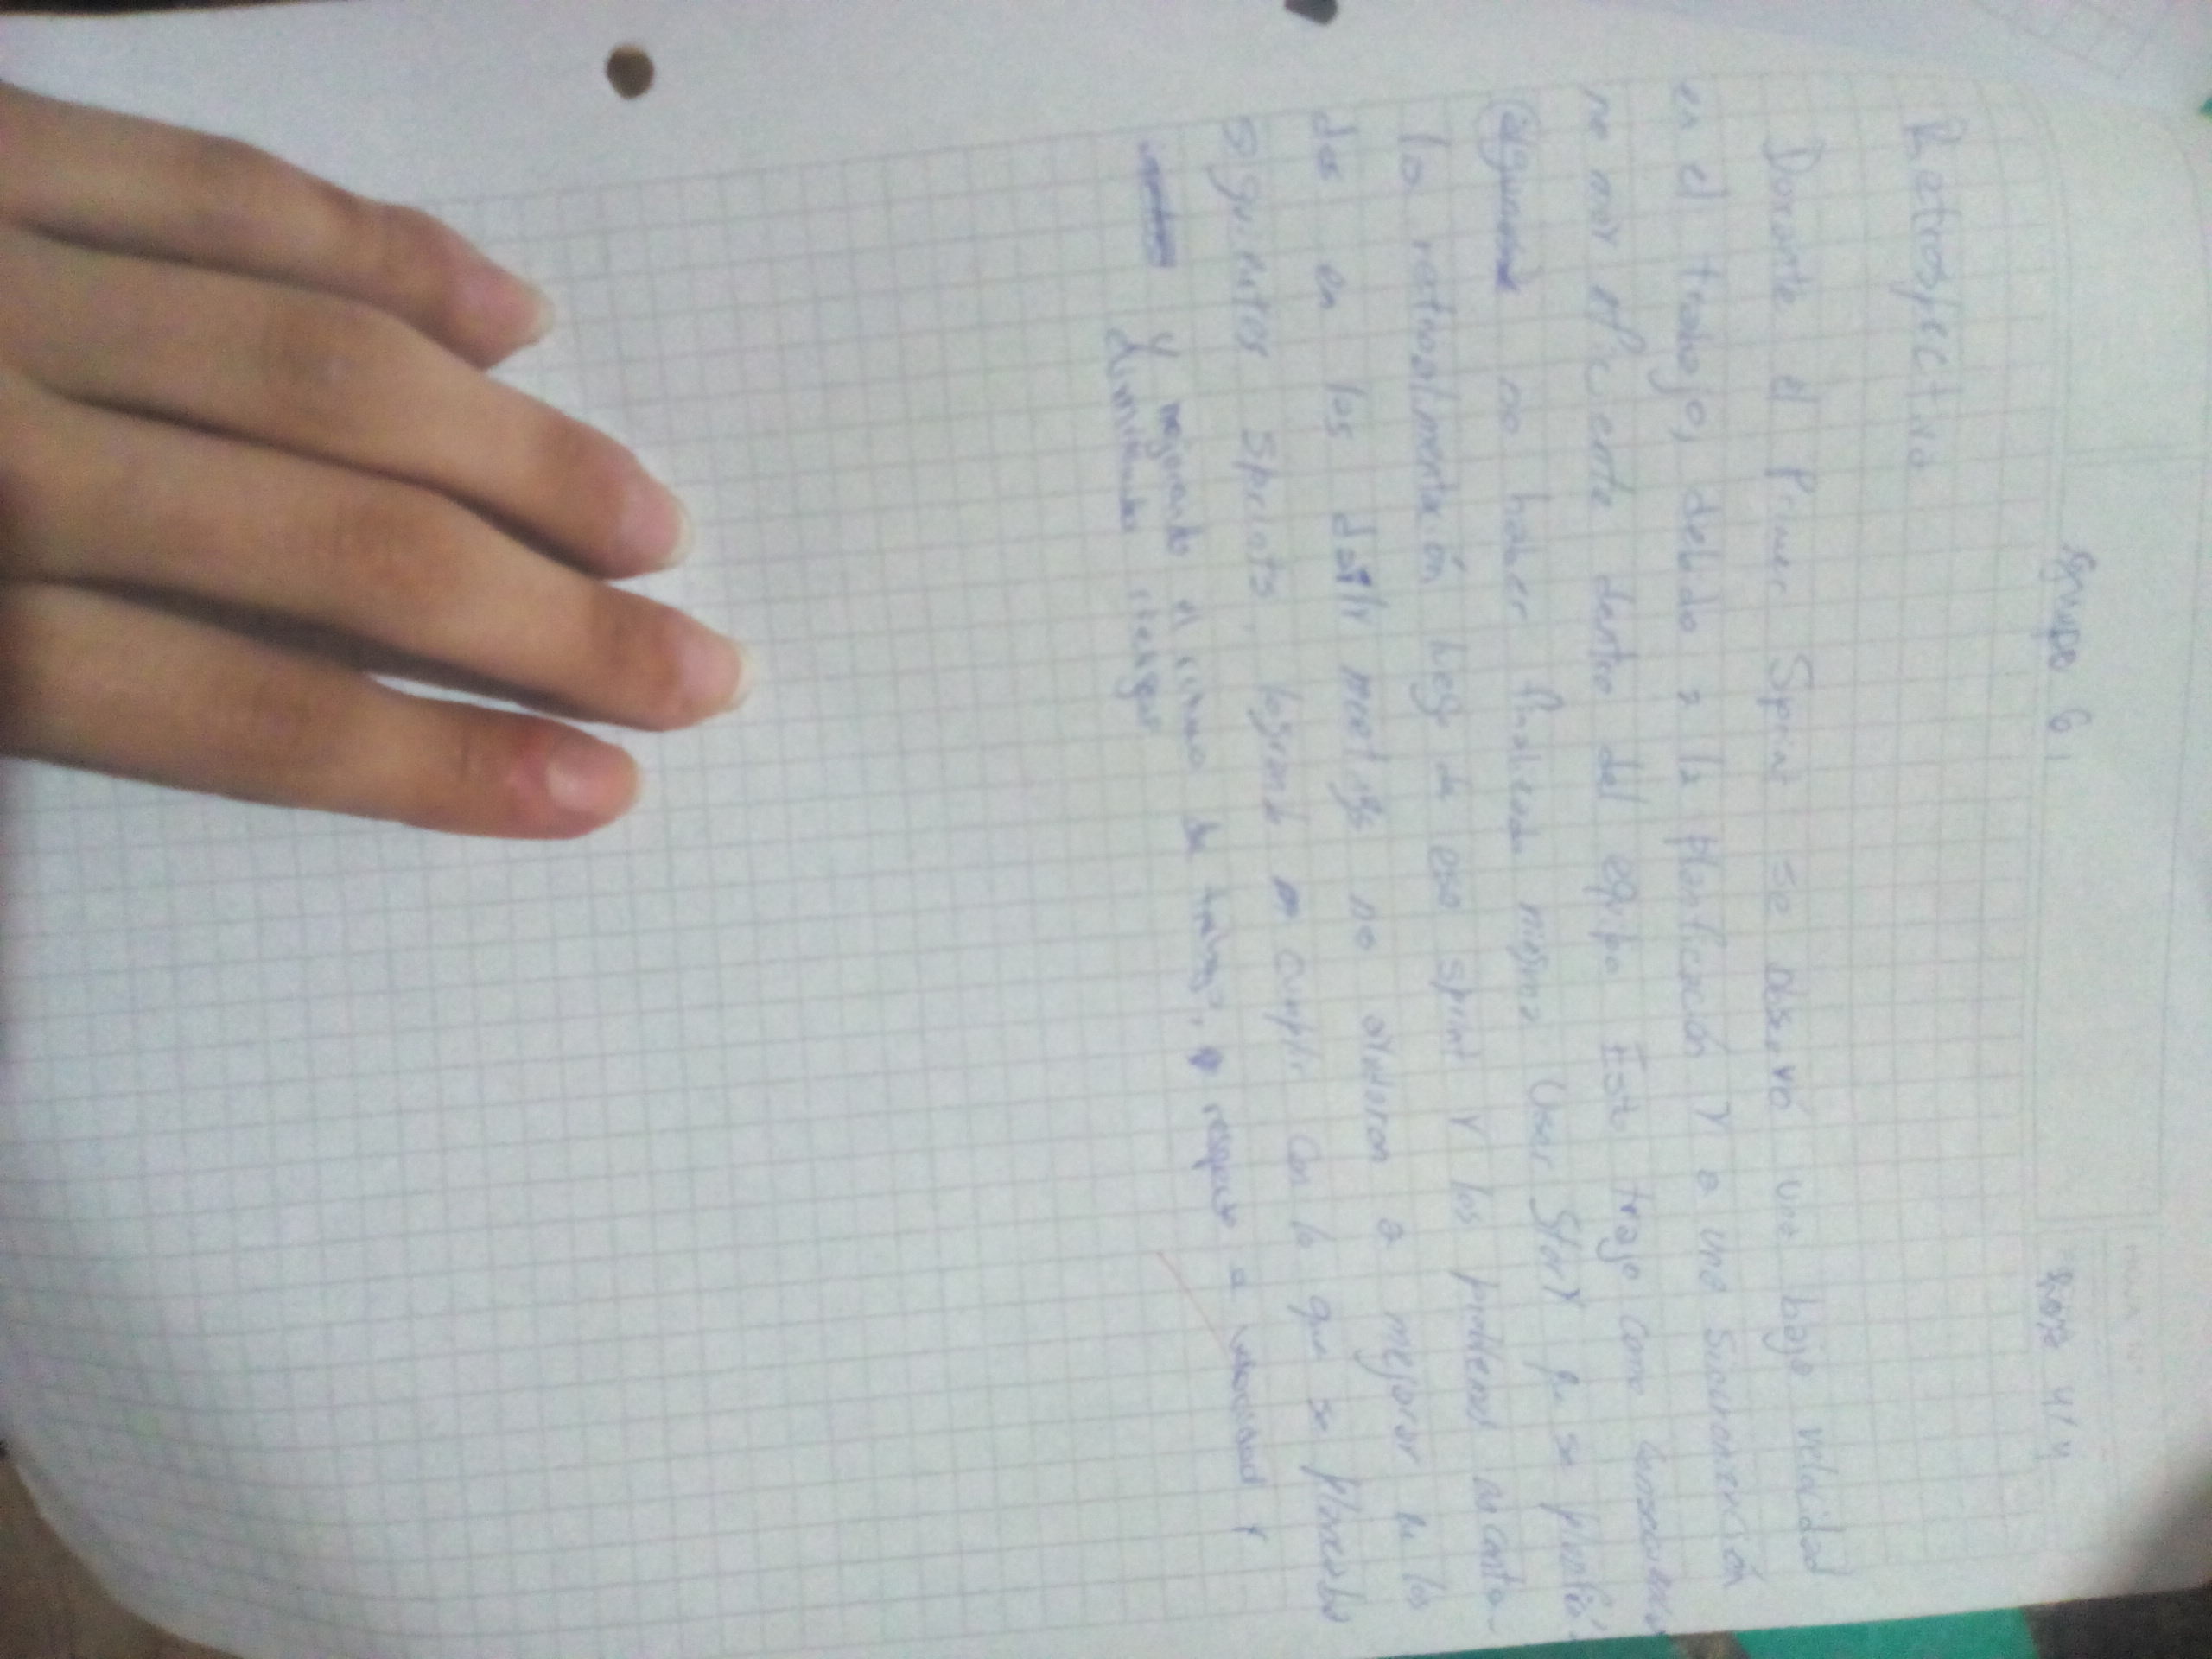 grupo 6
HOJA N°
4/4
Retrospectiva
Durante el Primer Sprint se observó una baja velocidad
en el trabajo, debido a la planificación y a una sincronización
no muy eficiente dentro del equipo Esto trajo como consecuencia
no haber finalizado ninguna User Story que se planificó.
La retroalimentación luego de ese sprint y los problemas encontra-
dos en los daily meetings nos ayudaron a mejorar en los
siguientes sprints, logrando cumplir con lo que se planeaba
y mejorando el ritmo de trabajo, respecto a velocidad y
riesgos